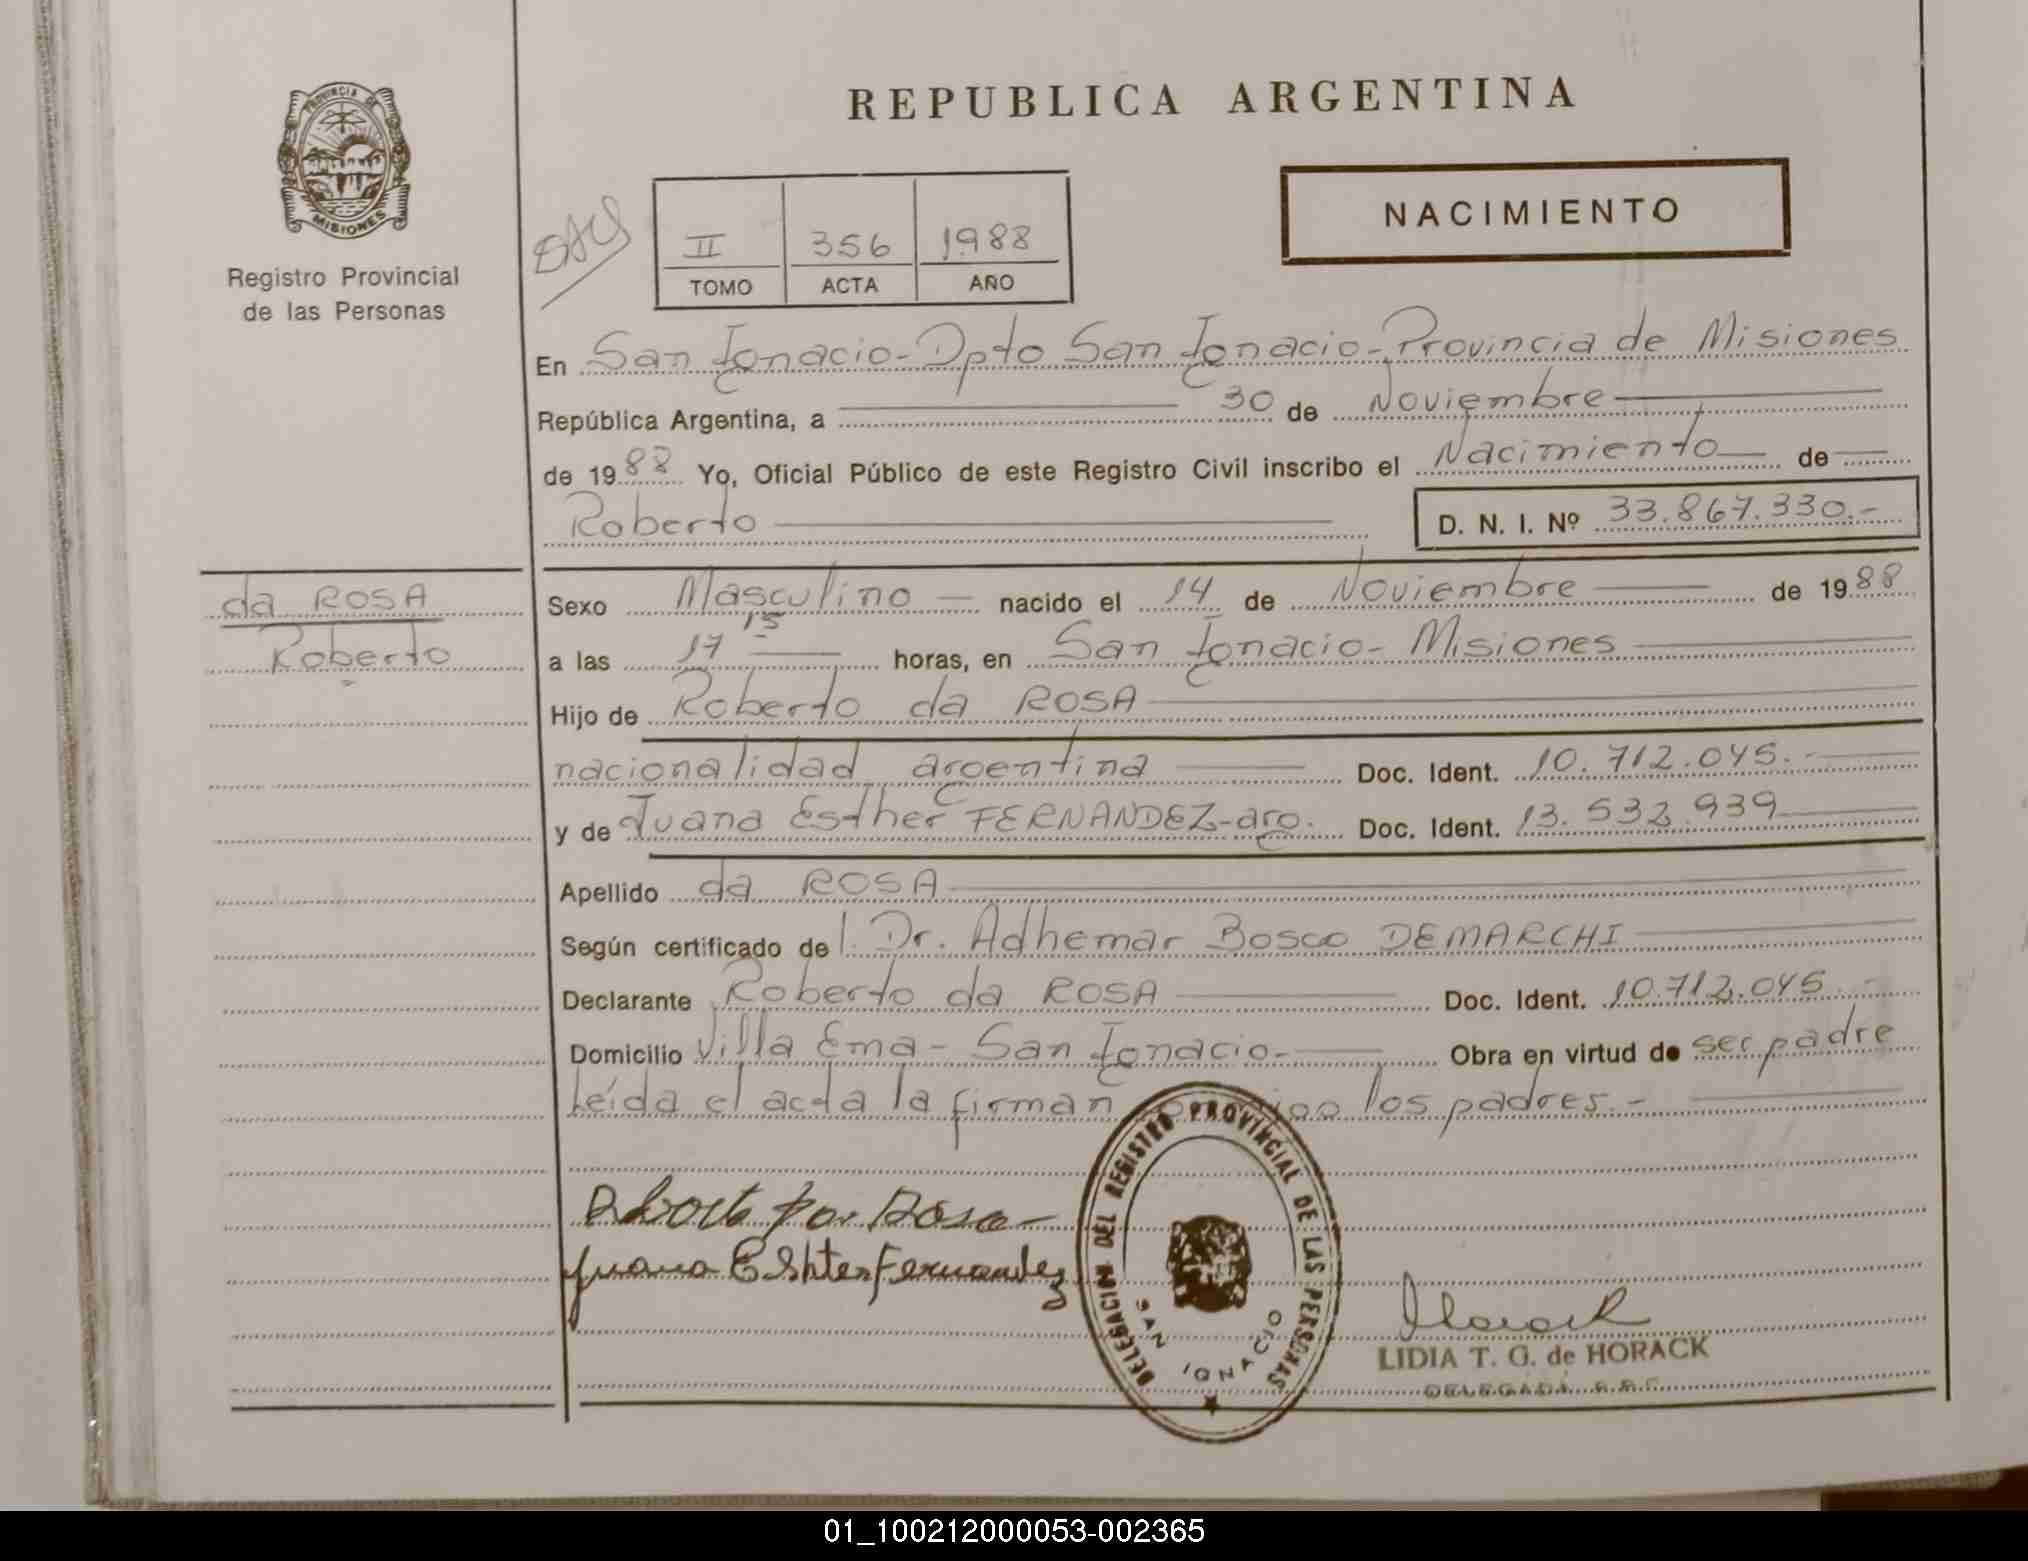 REPUBLICA ARGENTINA
PROVINCIA DE
MISIONES
Registro Provincial
de las Personas
NACIMIENTO
II 356 1988
TOMO ACTA AÑO
En San Ignacio-Dpto San Ignacio-Provincia de Misiones
República Argentina, a 30 de Noviembre
de 1988 Yo, Oficial Público de este Registro Civil inscribo el Nacimiento de
Roberto
D. N. I. Nº 33.867.330.-
da ROSA
Roberto
Sexo Masculino nacido el 14 de Noviembre de 1988
a las 17 15 horas, en San Ignacio- Misiones
Hijo de Roberto da ROSA
nacionalidad argentina Doc. Ident. 10.712.045.-
y de Juana Esther FERNANDEZ-arg. Doc. Ident. 13.532.939
Apellido da ROSA
Según certificado del. Dr. Adhemar Bosco DEMARCHI
Declarante Roberto da ROSA Doc. Ident. 10.712.045.-
Domicilio Villa Ema- San Ignacio.- Obra en virtud de ser padre
Leída el acta la firman los padres.-
Juana Eshter Fernandez
DELEGACION DEL REGISTRO PROVINCIAL DE LAS PERSONAS
SAN IGNACIO
Horack
LIDIA T. G. de HORACK
DELEGADA
01_100212000053-002365